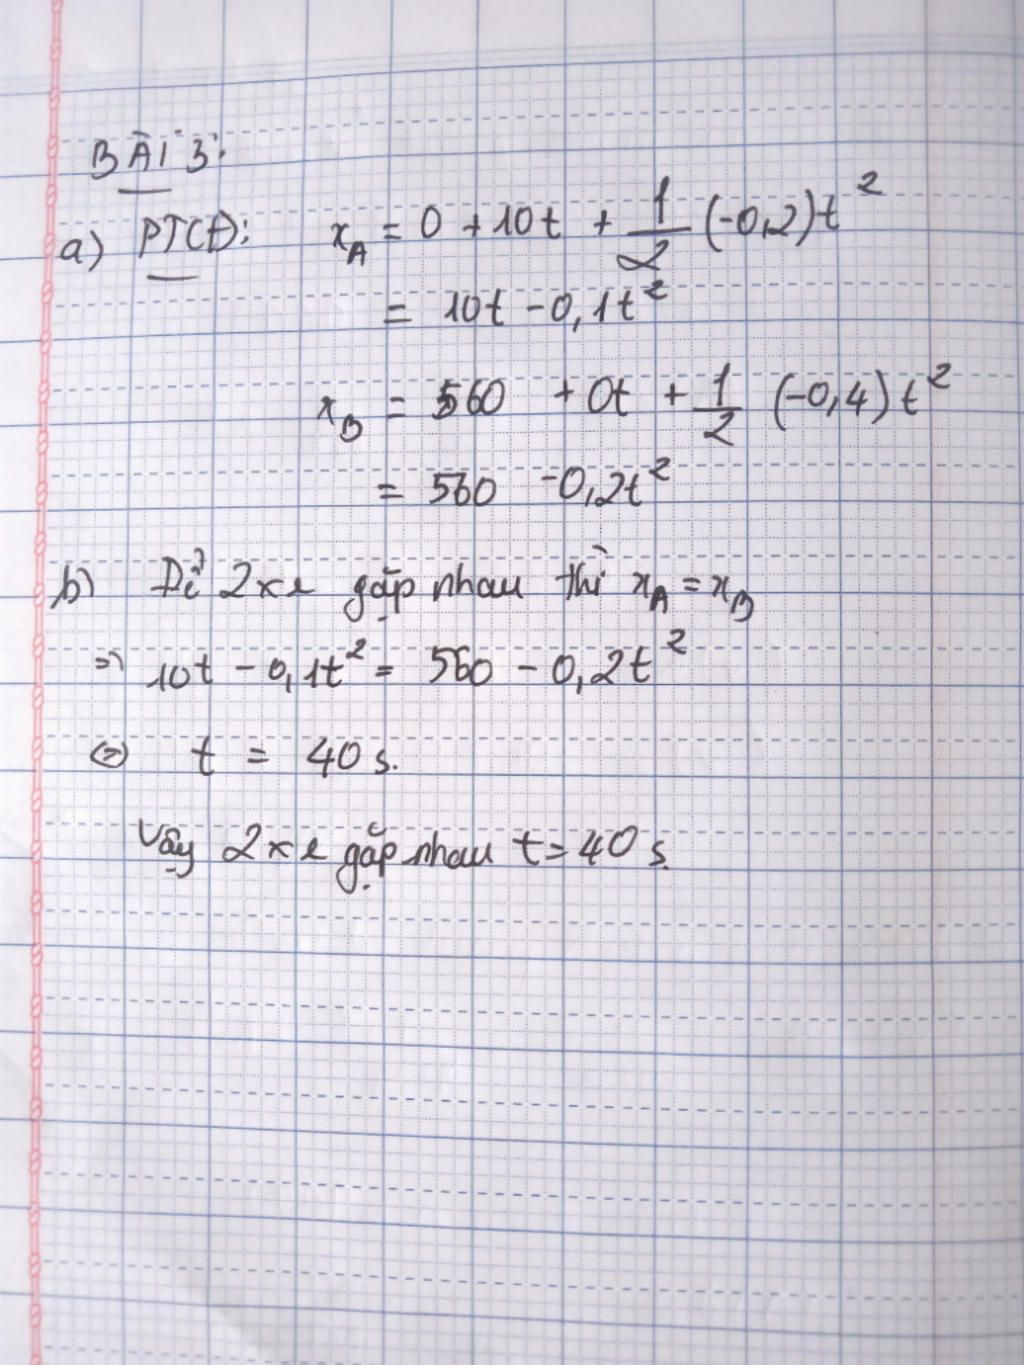 BÀI 3:
a) PTCĐ: x_A = 0 + 10t + 1/2 (-0,2)t²
= 10t - 0,1t²
x_B = 560 + 0t + 1/2 (-0,4)t²
= 560 - 0,2t²
b) Để 2 xe gặp nhau thì x_A = x_B
=> 10t - 0,1t² = 560 - 0,2t²
<=> t = 40 s.
Vậy 2 xe gặp nhau t = 40 s.